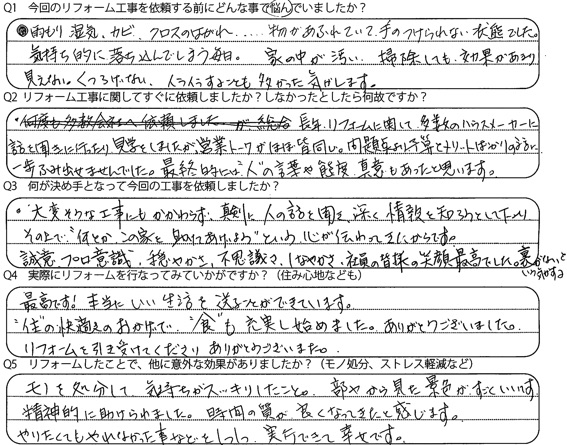 Q1　今回のリフォーム工事を依頼する前にどんな事で悩んでいましたか？
●雨もり 湿気、カビ、クロスのはがれ、．．．．物があふれていて、手のつけられない状態でした。
気持ち的に落ち込んでしまう毎日。 家の中が汚い、掃除しても効果があまり
見えない。くつろげない、イライラすることも多かった気がします。
Q2　リフォーム工事に関してすぐに依頼しましたか？しなかったとしたら何故ですか？
長年、リフォームに関して、多数のハウスメーカーに
話を聞きに行たり見学をしましたが、営業トークがほぼ皆同じ。問題点より予算とメリットばかりの話に
一歩ふみ出せませんでした。最終的には“人”の言葉や態度、真意もあったと思います。
Q3　何が決め手となって今回の工事を依頼しましたか？
・大変そうな工事にもかかわらず、真剣に人の話を聞き、深く情報を知ろうとして下さり
その上で“何とか、この家を助けてあげよう”という心が伝わってきたからです。
誠意、プロ意識、穏やかさ、不思議さ、しなやかさ、社員の皆様の笑顔最高でした。裏がないという気がする
Q4　実際にリフォームを行なってみていかがですか？（住み心地なども）
最高です！本当にいい生活を送ることができています。
“住”の快適さのおかげで、“食”も充実し始めました。ありがとうございました。
リフォームを引き受けてくださり ありがとうございました。
Q5　リフォームしたことで、他に意外な効果がありましたか？（モノ処分、ストレス軽減など）
モノを処分して、気持ちがスッキリしたこと。 部やから見た景色がすごくいいです。
精神的に助けられました。時間の質が良くなってきたと感じます。
やりたくてもやれなかった事などを少しづつ、実行できて幸せです。